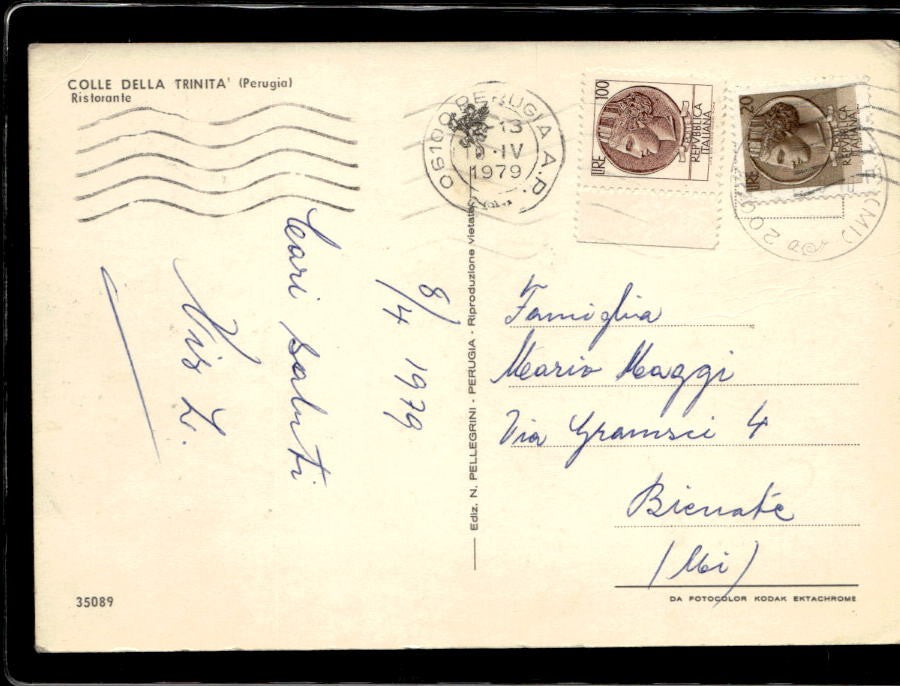 COLLE DELLA TRINITA' (Perugia)
Ristorante
06100 PERUGIA A.P.
-13
IV
1979
LIRE 100
REPVBBLICA
ITALIANA
LIRE 20
REPVBBLICA
ITALIANA
(MI)
200
8/4 1979
Cari saluti
Vis Z.
Ediz. N. PELLEGRINI - PERUGIA - Riproduzione vietata
Famiglia
Mario Maggi
Via Gramsci 4
Bienate
(Mi)
35089
DA FOTOCOLOR KODAK EKTACHROME